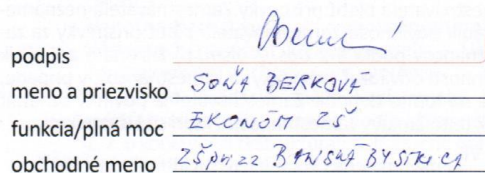 podpis
meno a priezvisko SOŇA BERKOVÁ
funkcia/plná moc EKONÓM ZŠ
obchodné meno ZŠ pri ZZ BANSKÁ BYSTRICA